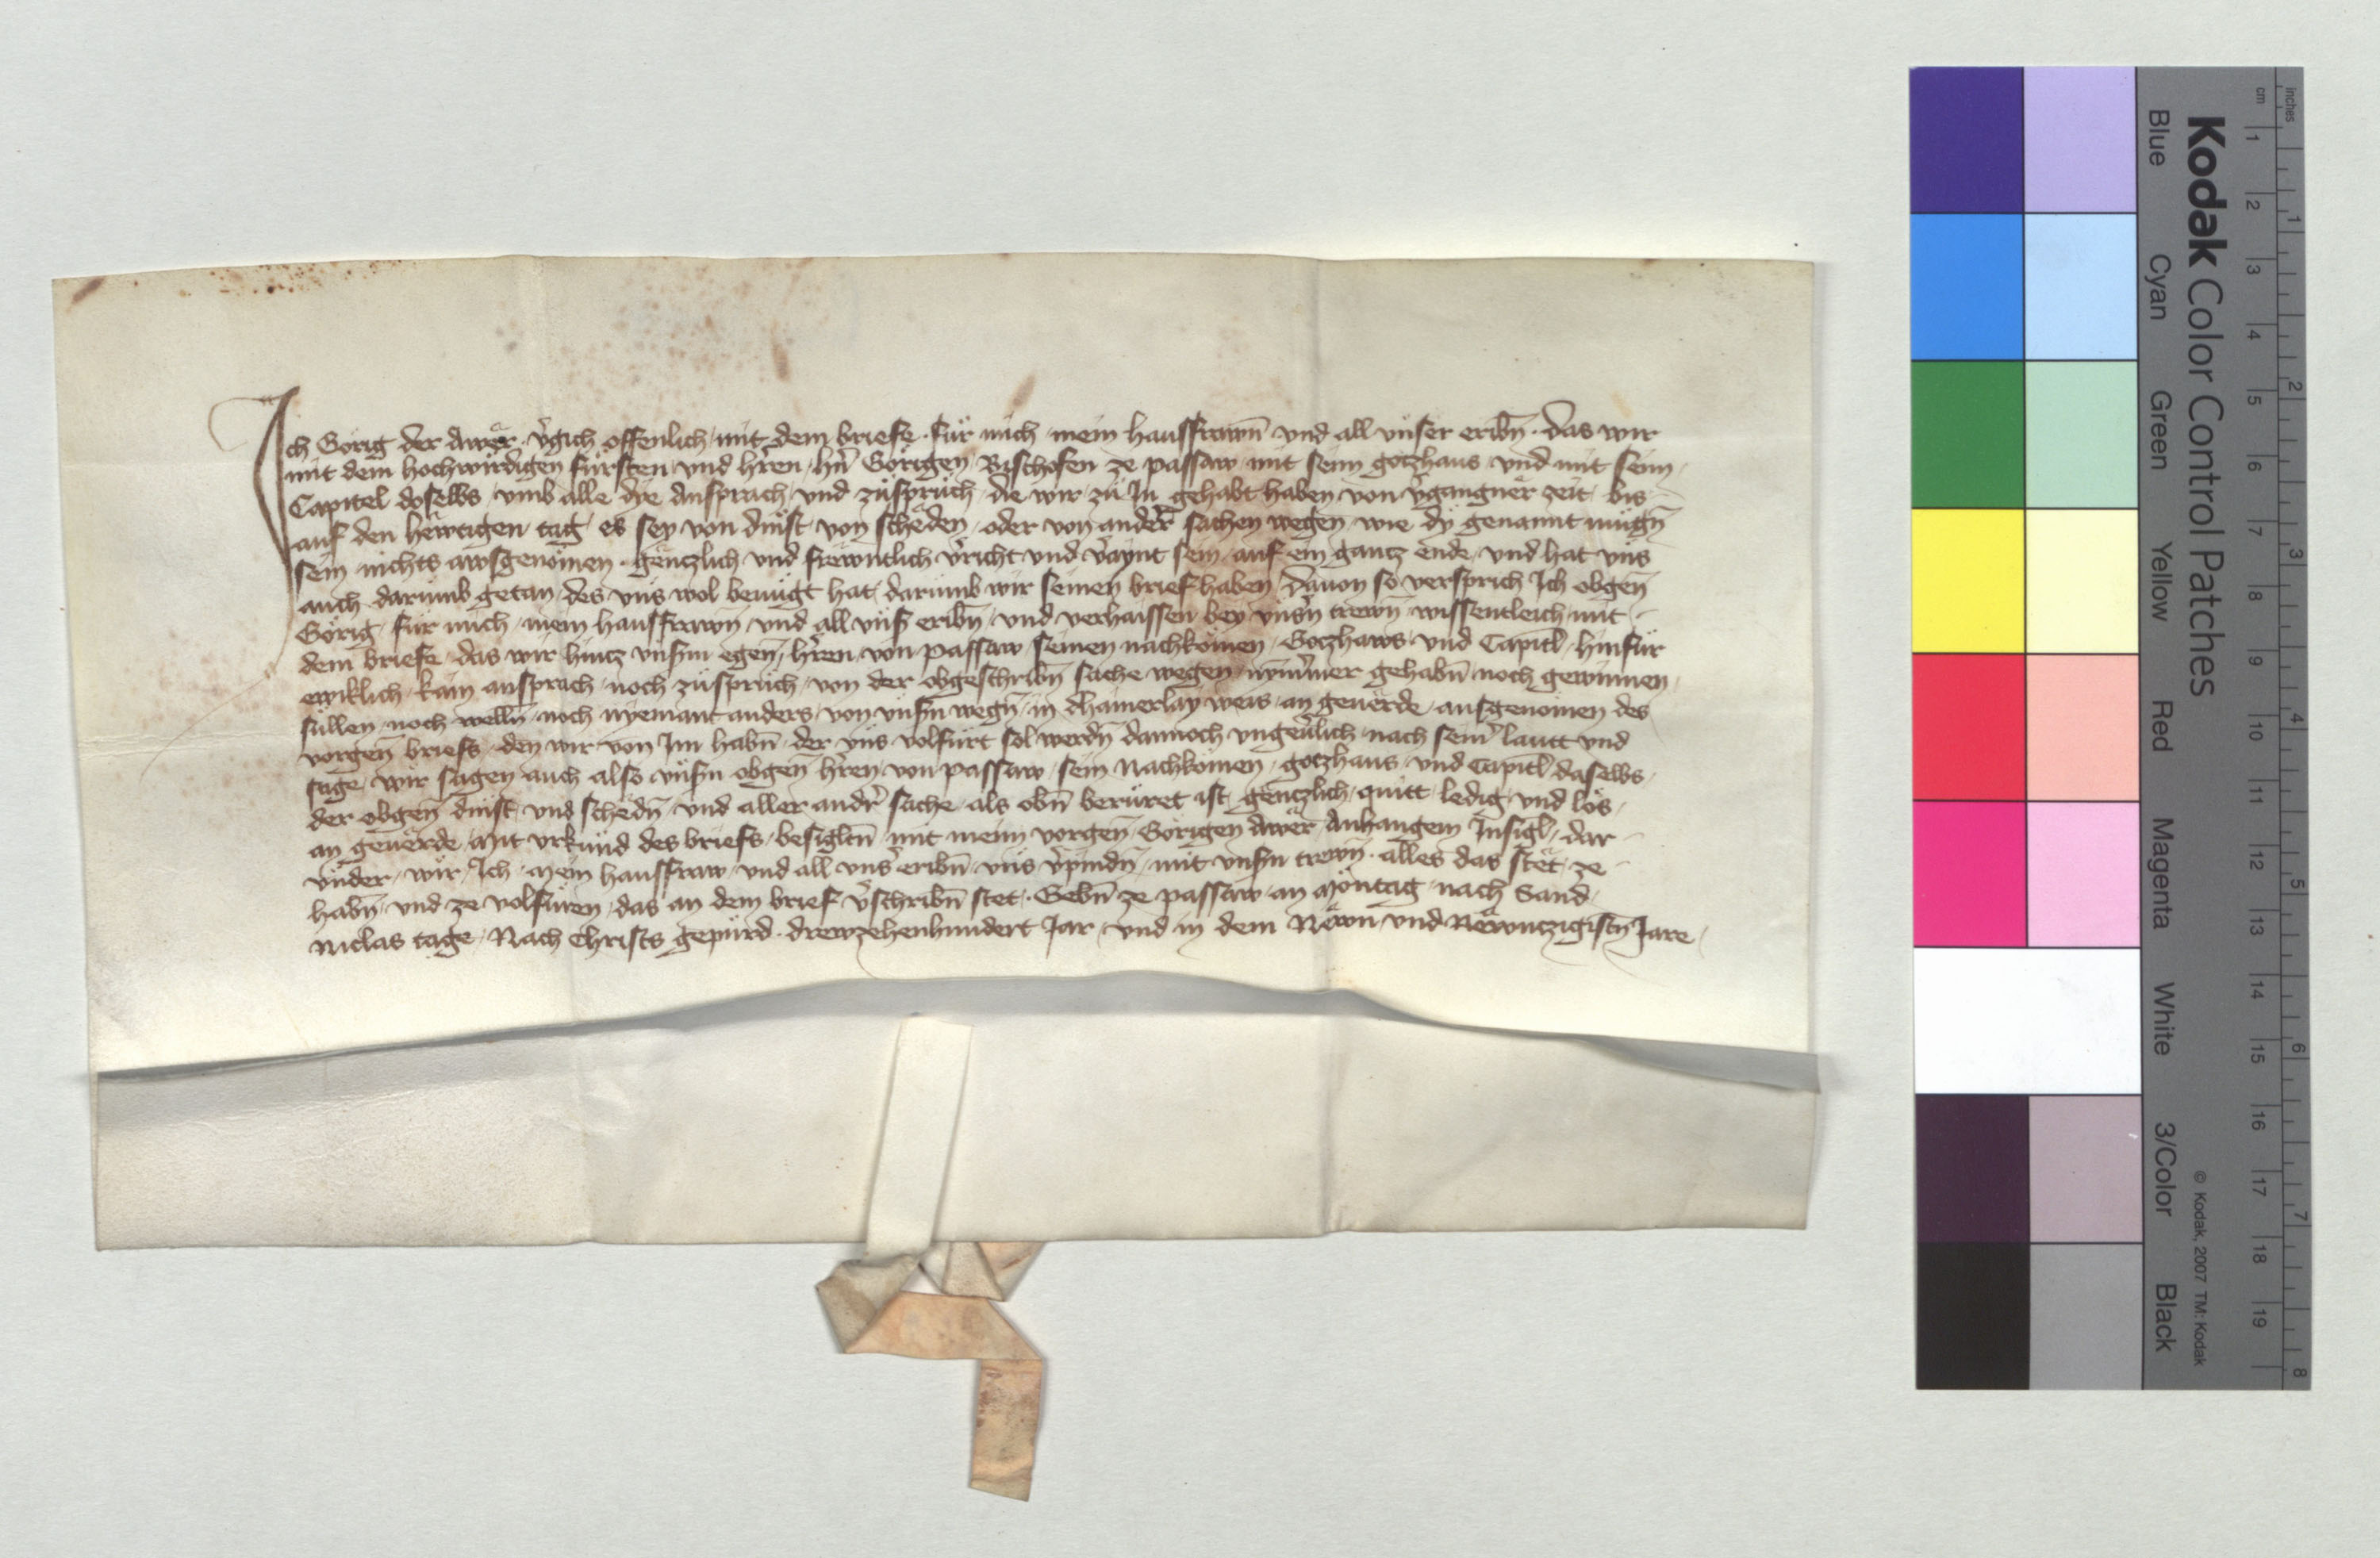 Ich Görig der Awër v̉gich offenlich mit dem briefe für mich mein hausfrawn̄ vnd all vnser eribn̄ das wir
mit dem hochwirdigen fürsten vnd hr̄en hn̄ Görigen Bischofen ze passaw mit seim gotzhaus vnd mit seim
Capitel doselbs vmb alle dye Ansprach vnd züsprüch die wir zü In gehabt haben von v̉gangner zeit bis
auf den hëwtigen tag es sey von dinst von schëden oder von ander̄ sachen wegen wie dÿ genannt mügn̄
sein nichts awsgenömen gëntzlich vnd frewntlich v̉richt vnd v̉aynt sein auf ein gantz ende vnd hat vns
auch darumb getan des vns wol benügt hat darumb wir seinen brief haben Dauon so versprich Ich obgen̄
Görig für mich mein hausfrawn̄ vnd all vnß eribn̄ vnd verhaissen bey vnsn̄ trewn̄ wissentleich mit
dem briefe das wir hintz vnßm egen̄ hr̄en von passaw seinen nachkömen Gotzhaws vnd Capitl hinfür
ewiklich kain ansprach noch züsprüch von der obgeschribn̄ sache wegen nymmer gehabn̄ noch gewinnen
süllen noch welln̄ noch nyemant anders von vnßn wegn̄ in dhainerlay weis an geuërde ausgenömen des
vorgen̄ briefs den wir von Im habn̄ der vns volfürt sol werdn̄ dannoch vngeu̓lich nach seim̓ lautt vnd
sage wir sagen auch also vnßn obgen̄ hr̄en von passaw sein Nachkömen gotzhaus vnd Capitl daselbs
der obgen̄ dinst vnd schedn̄ vnd aller andr̓ sache als obn̄ berüret ist gëntzlich quitt ledig vnd lös
an geuërde Mit vrkünd des briefs besigltn̄ mit meim vorgen̄ Görigen Awër Anhangem Insigl dar
vnder wir Ich Mein hausfraw vnd all vns̓ eribn̄ vns v̉pindn̄ mit vnßn trewn̄ alles das stët ze
habn̄ vnd ze volfüren das an dem brief v̉schribn̄ stet Gebn̄ ze passaw an Möntag nach Sand
Niclas tage Nach Christs gepürd drewzehenhundert Jar vnd in dem Nëwn vnd Nëwntzigistn̄ Jare
Kodak Color Control Patches
Blue Cyan Green Yellow Red Magenta White 3/Color Black
© Kodak, 2007 TM: Kodak
cm 1 2 3 4 5 6 7 8 9 10 11 12 13 14 15 16 17 18 19
inches 1 2 3 4 5 6 7 8